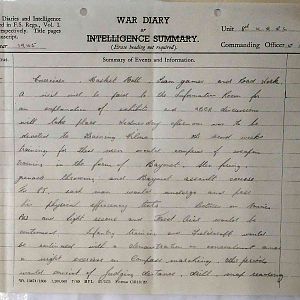 Diaries and Intelligence
d in F.S. Regs., Vol. I.
respectively. Title pages
nuscript.
1945
WAR DIARY
or
INTELLIGENCE SUMMARY.
(Erase heading not required).
Unit
Commanding Officer
Summary of Events and Information.
Exercise Basket Ball Team games and Road Work
A visit will be paid to the Information Room for
an explanation of exhibits and ABCA discussions
will take place Wednesday afternoon was to be
devoted to Training Films. The second weeks
training for this men would comprise of weapon
training in the form of Bayonet, firing,
grenade throwing and Bayonet assault course
to 85. each man would undergo and pass
his physical efficiency tests lectures on
and light and First Aid would be
continued Infantry training and Fieldcraft would
be continued with a demonstration on concealment and
a night exercise in Compass marching. The periods
would consist of Judging distance, drill map reading